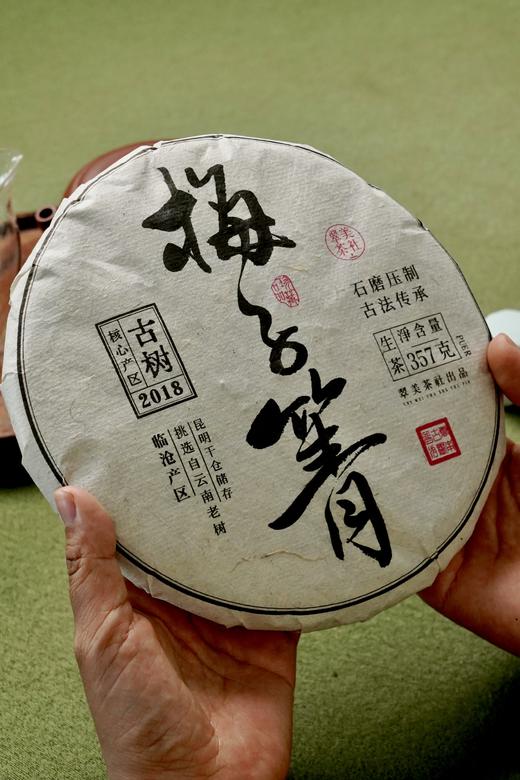 梅子箐
翠美茶社
石磨压制
古法传承
生茶
净含量
357克
翠美茶社出品
CUI MEI CHA SHE CHU PIN
古树
核心产区
2018
昆明干仓储存
挑选自云南老树
临沧产区